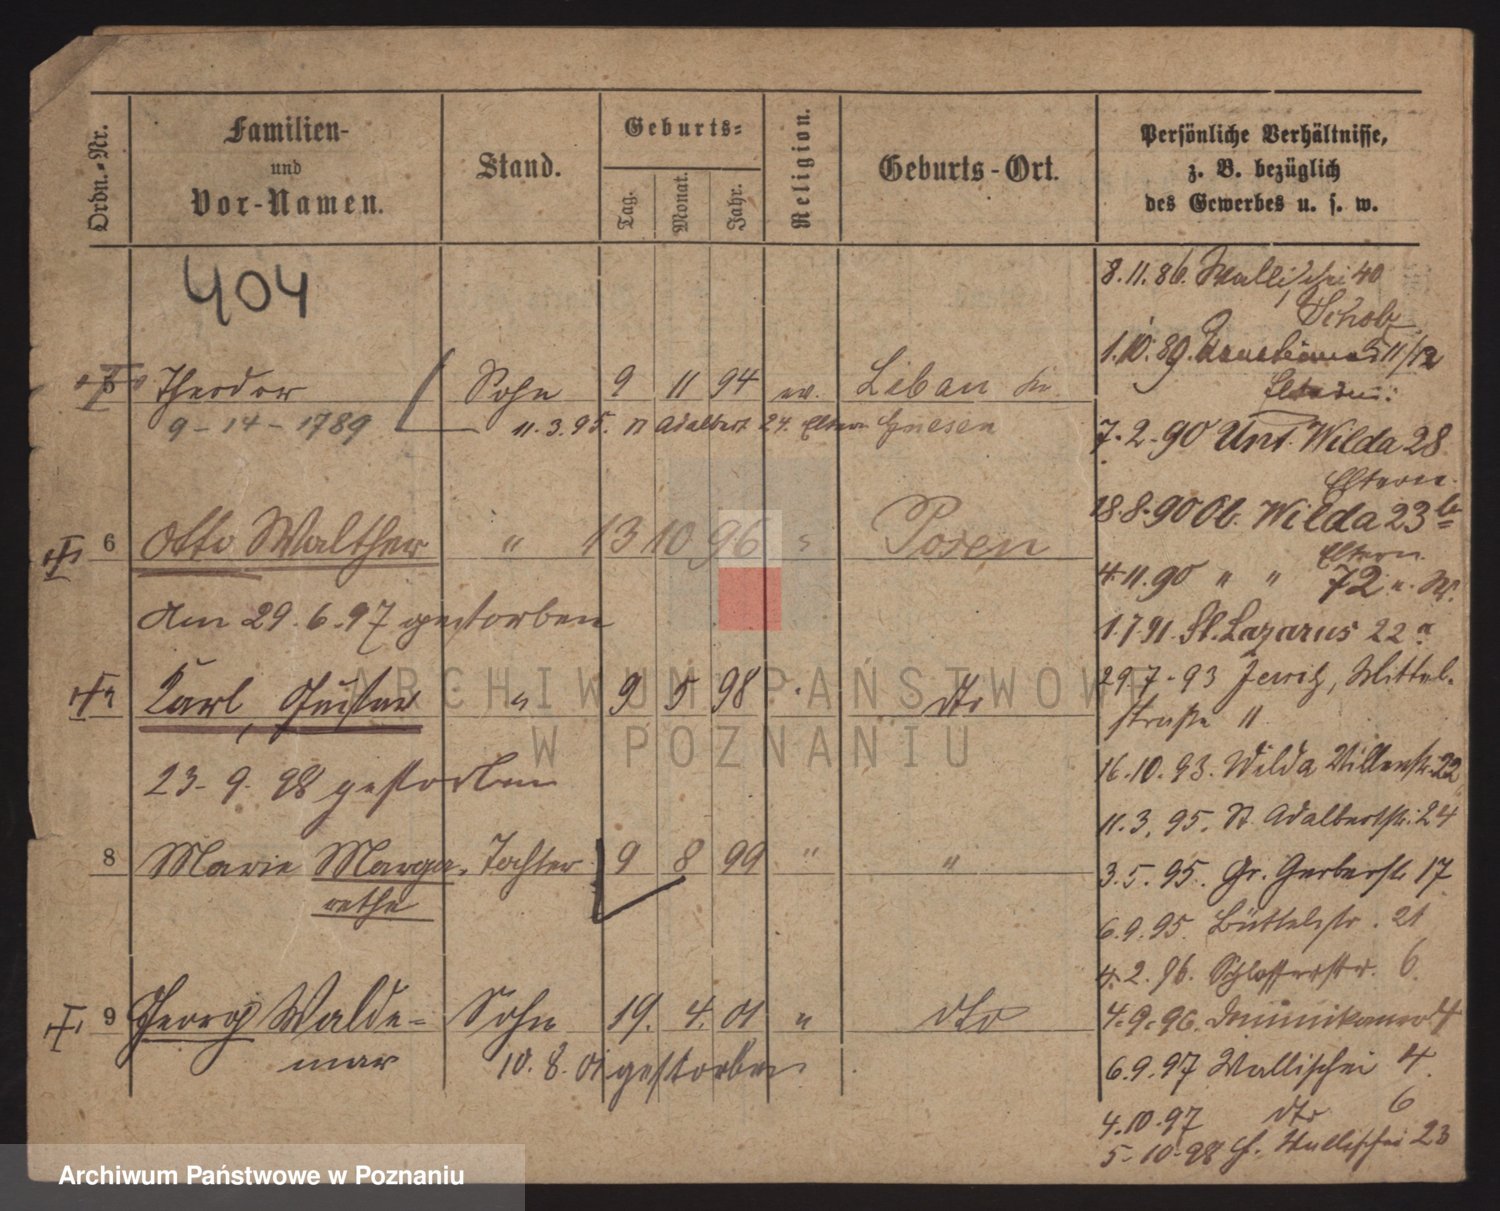 Ordn.-Nr.
Familien-
und
Vor-Namen.
Stand.
Geburts-
Tag.
Monat.
Jahr.
Religion.
Geburts-Ort.
Persönliche Verhältnisse,
z. B. bezüglich
des Gewerbes u. s. w.
404
5 Theodor Sohn 9 11 94 ev. Liban
9-14-1789 11.3.95. St Adalbert 24. Eltern Gnesen
6 Otto Walther " 13 10 96 Posen
Am 29.6.97 gestorben
Karl, Gustav " 9 5 98 dto
23.9.98 gestorben
8 Marie Marga- Tochter 9 8 99 " "
rethe
9 Georg Walde- Sohn 19. 4. 01 " dto
mar 10.8.01 gestorben
8.11.86. Wallischei 40
Scholz
1.10.89. 11/12
Eltern:
7.2.90 Unt. Wilda 28
Eltern
18.8.90 Ob. Wilda 23b
Eltern
4.11.90 " " 72 u. W.
1.7.91. St. Lazarus 22a
29.7.93 Jersitz, Mittel-
straße 11
16.10.93. Wilda Villenstr. 22
11.3.95. St Adalbertstr. 24
3.5.95. Gr. Gerberstr 17
6.9.95. Büttelstr. 21
4.2.96. Schlosserstr. 6.
4.9.96. Dominikaner 4
6.9.97 Wallischei 4.
4.10.97 dto 6
5.10.98 Wallischei 23
ARCHIWUM PAŃSTWOWE
W POZNANIU
Archiwum Państwowe w Poznaniu